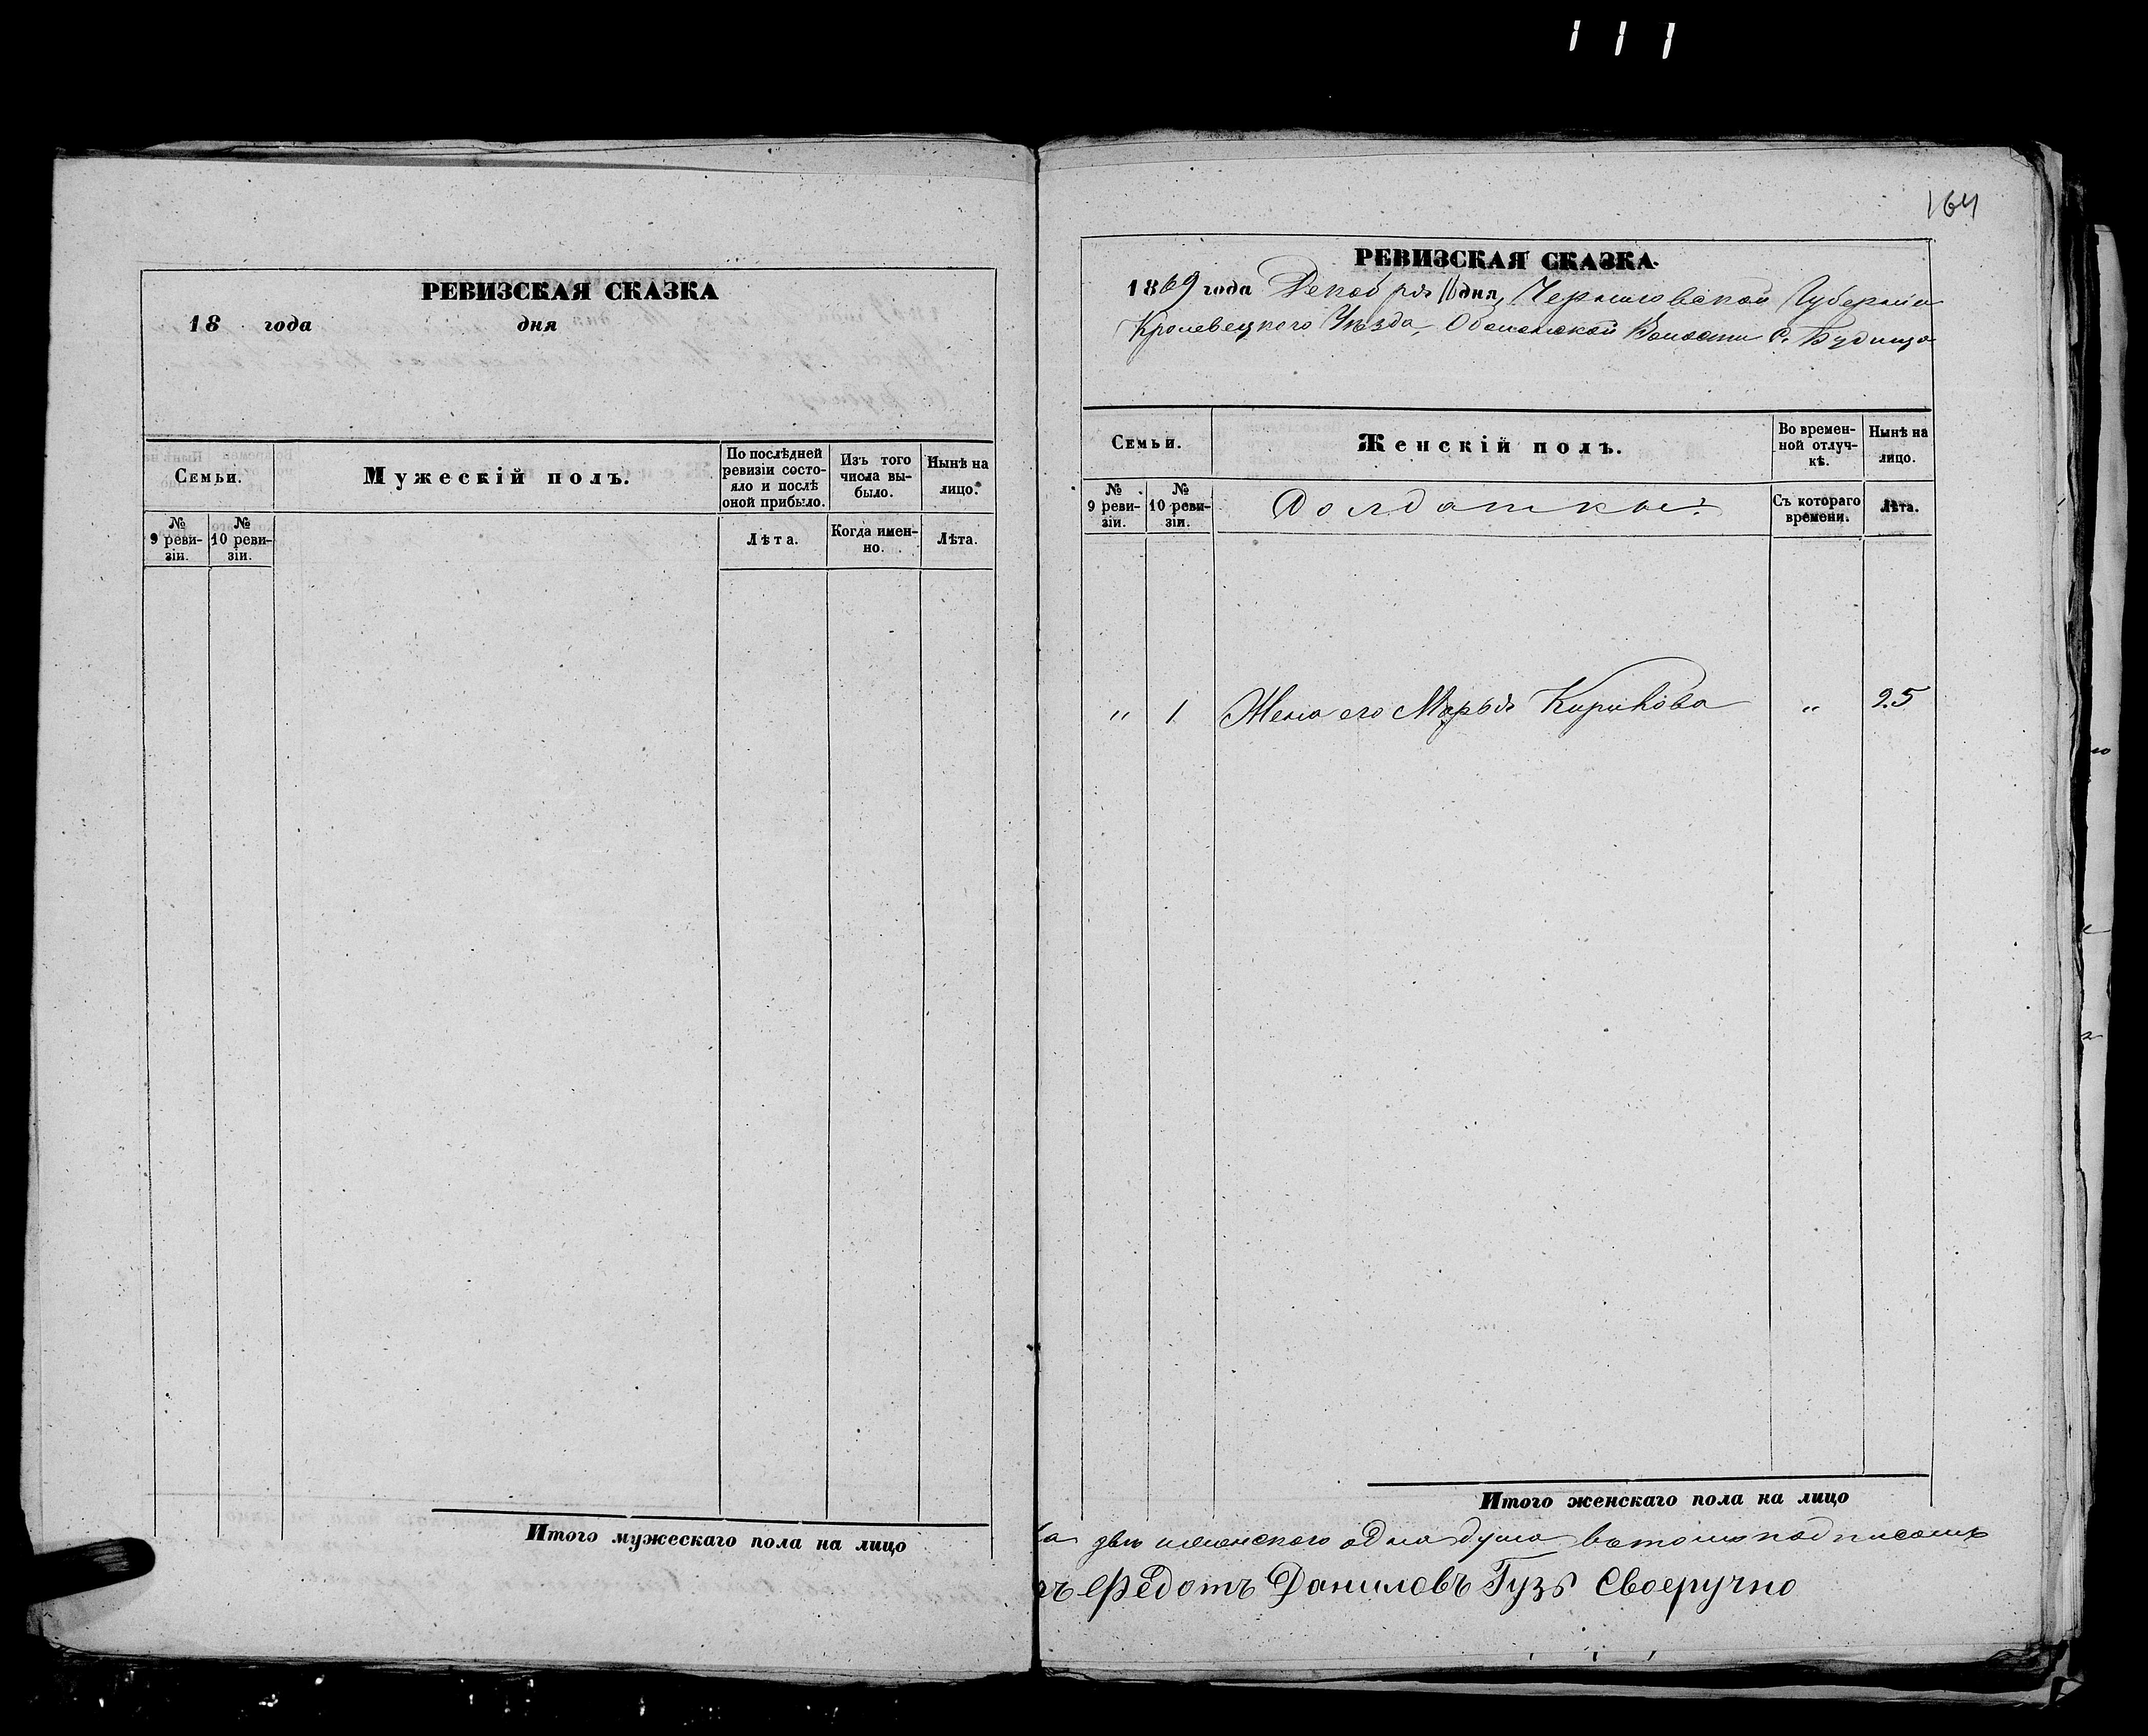 111
РЕВИЗСКАЯ СКАЗКА
18 года дня
Семьи.
Мужескій полъ.
По послѣдней ревизіи состояло и послѣ оной прибыло.
Изъ того числа выбыло.
Нынѣ на лицо.
№ 9 ревизіи.
№ 10 ревизіи.
Лѣта.
Когда именно.
Лѣта.
Итого мужескаго пола на лицо
164
РЕВИЗСКАЯ СКАЗКА.
1869 года Декабря 16 дня, Черниговской Губерніи
Кролевецкого Уѣзда, Волости С. Будища
Семьи.
Женскій полъ.
Во временной отлучкѣ.
Нынѣ на лицо.
№ 9 ревизіи.
№ 10 ревизіи.
Солдатки:
Съ котораго времени.
Лѣта.
„ 1. Жена его Марья Кирикова „ 25
Итого женскаго пола на лицо
две женского одна душа вътомъ подписомъ
Федотъ Даниловъ Гузъ Своеручно